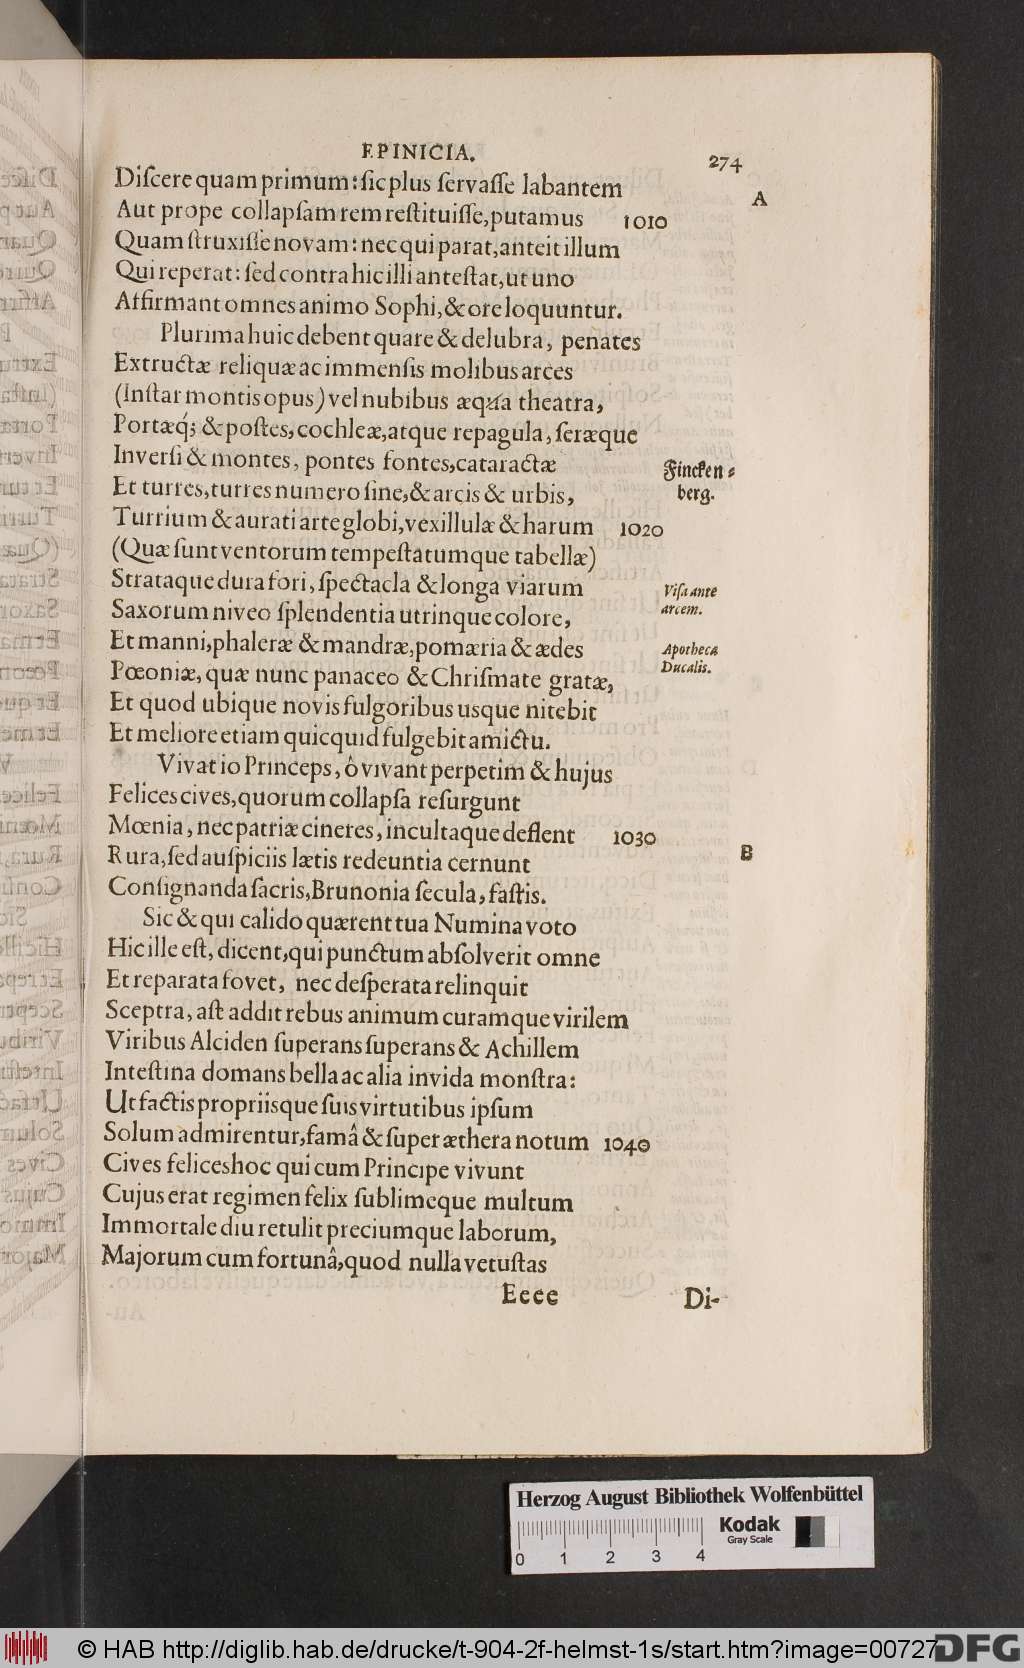 EPINICIA. 274
Diſcere quam primum: ſic plus ſervaſſe labantem
A
Aut prope collapſam rem reſtituiſſe, putamus 1010
Quam ſtruxiſſe novam: nec qui parat, anteit illum
Qui reperat: ſed contra hic illi anteſtat, ut uno
Affirmant omnes animo Sophi, & ore loquuntur.
Plurima huic debent quare & delubra, penates
Extructæ reliquæ ac immenſis molibus arces
(Inſtar montis opus) vel nubibus æqua theatra,
Portæq́; & poſtes, cochleæ, atque repagula, ſeræque
Inverſi & montes, pontes fontes, cataractæ
Finckenberg.
Et turres, turres numero ſine, & arcis & urbis,
Turrium & aurati arte globi, vexillulæ & harum 1020
(Quæ ſunt ventorum tempeſtatumque tabellæ)
Strataque dura fori, ſpectacla & longa viarum
Viſa ante
arcem.
Saxorum niveo ſplendentia utrinque colore,
Et manni, phaleræ & mandræ, pomæria & ædes
Apotheca
Ducalis.
Pœoniæ, quæ nunc panaceo & Chriſmate gratæ,
Et quod ubique novis fulgoribus usque nitebit
Et meliore etiam quicquid fulgebit amictu.
Vivat io Princeps, ô vivant perpetim & hujus
Felices cives, quorum collapſa reſurgunt
Mœnia, nec patriæ cineres, incultaque deflent 1030
B
Rura, ſed auſpiciis lætis redeuntia cernunt
Conſignanda ſacris, Brunonia ſecula, faſtis.
Sic & qui calido quærent tua Numina voto
Hic ille eſt, dicent, qui punctum abſolverit omne
Et reparata fovet, nec deſperata relinquit
Sceptra, aſt addit rebus animum curamque virilem
Viribus Alciden ſuperans ſuperans & Achillem
Inteſtina domans bella ac alia invida monſtra:
Ut factis propriisque ſuis virtutibus ipſum
Solum admirentur, famâ & ſuper æthera notum 1040
Cives felices hoc qui cum Principe vivunt
Cujus erat regimen felix ſublimeque multum
Immortale diu retulit preciumque laborum,
Majorum cum fortunâ, quod nulla vetuſtas
Eeee Di-
Herzog August Bibliothek Wolfenbüttel
Kodak
Gray Scale
0 1 2 3 4
© HAB http://diglib.hab.de/drucke/t-904-2f-helmst-1s/start.htm?image=00727
DFG